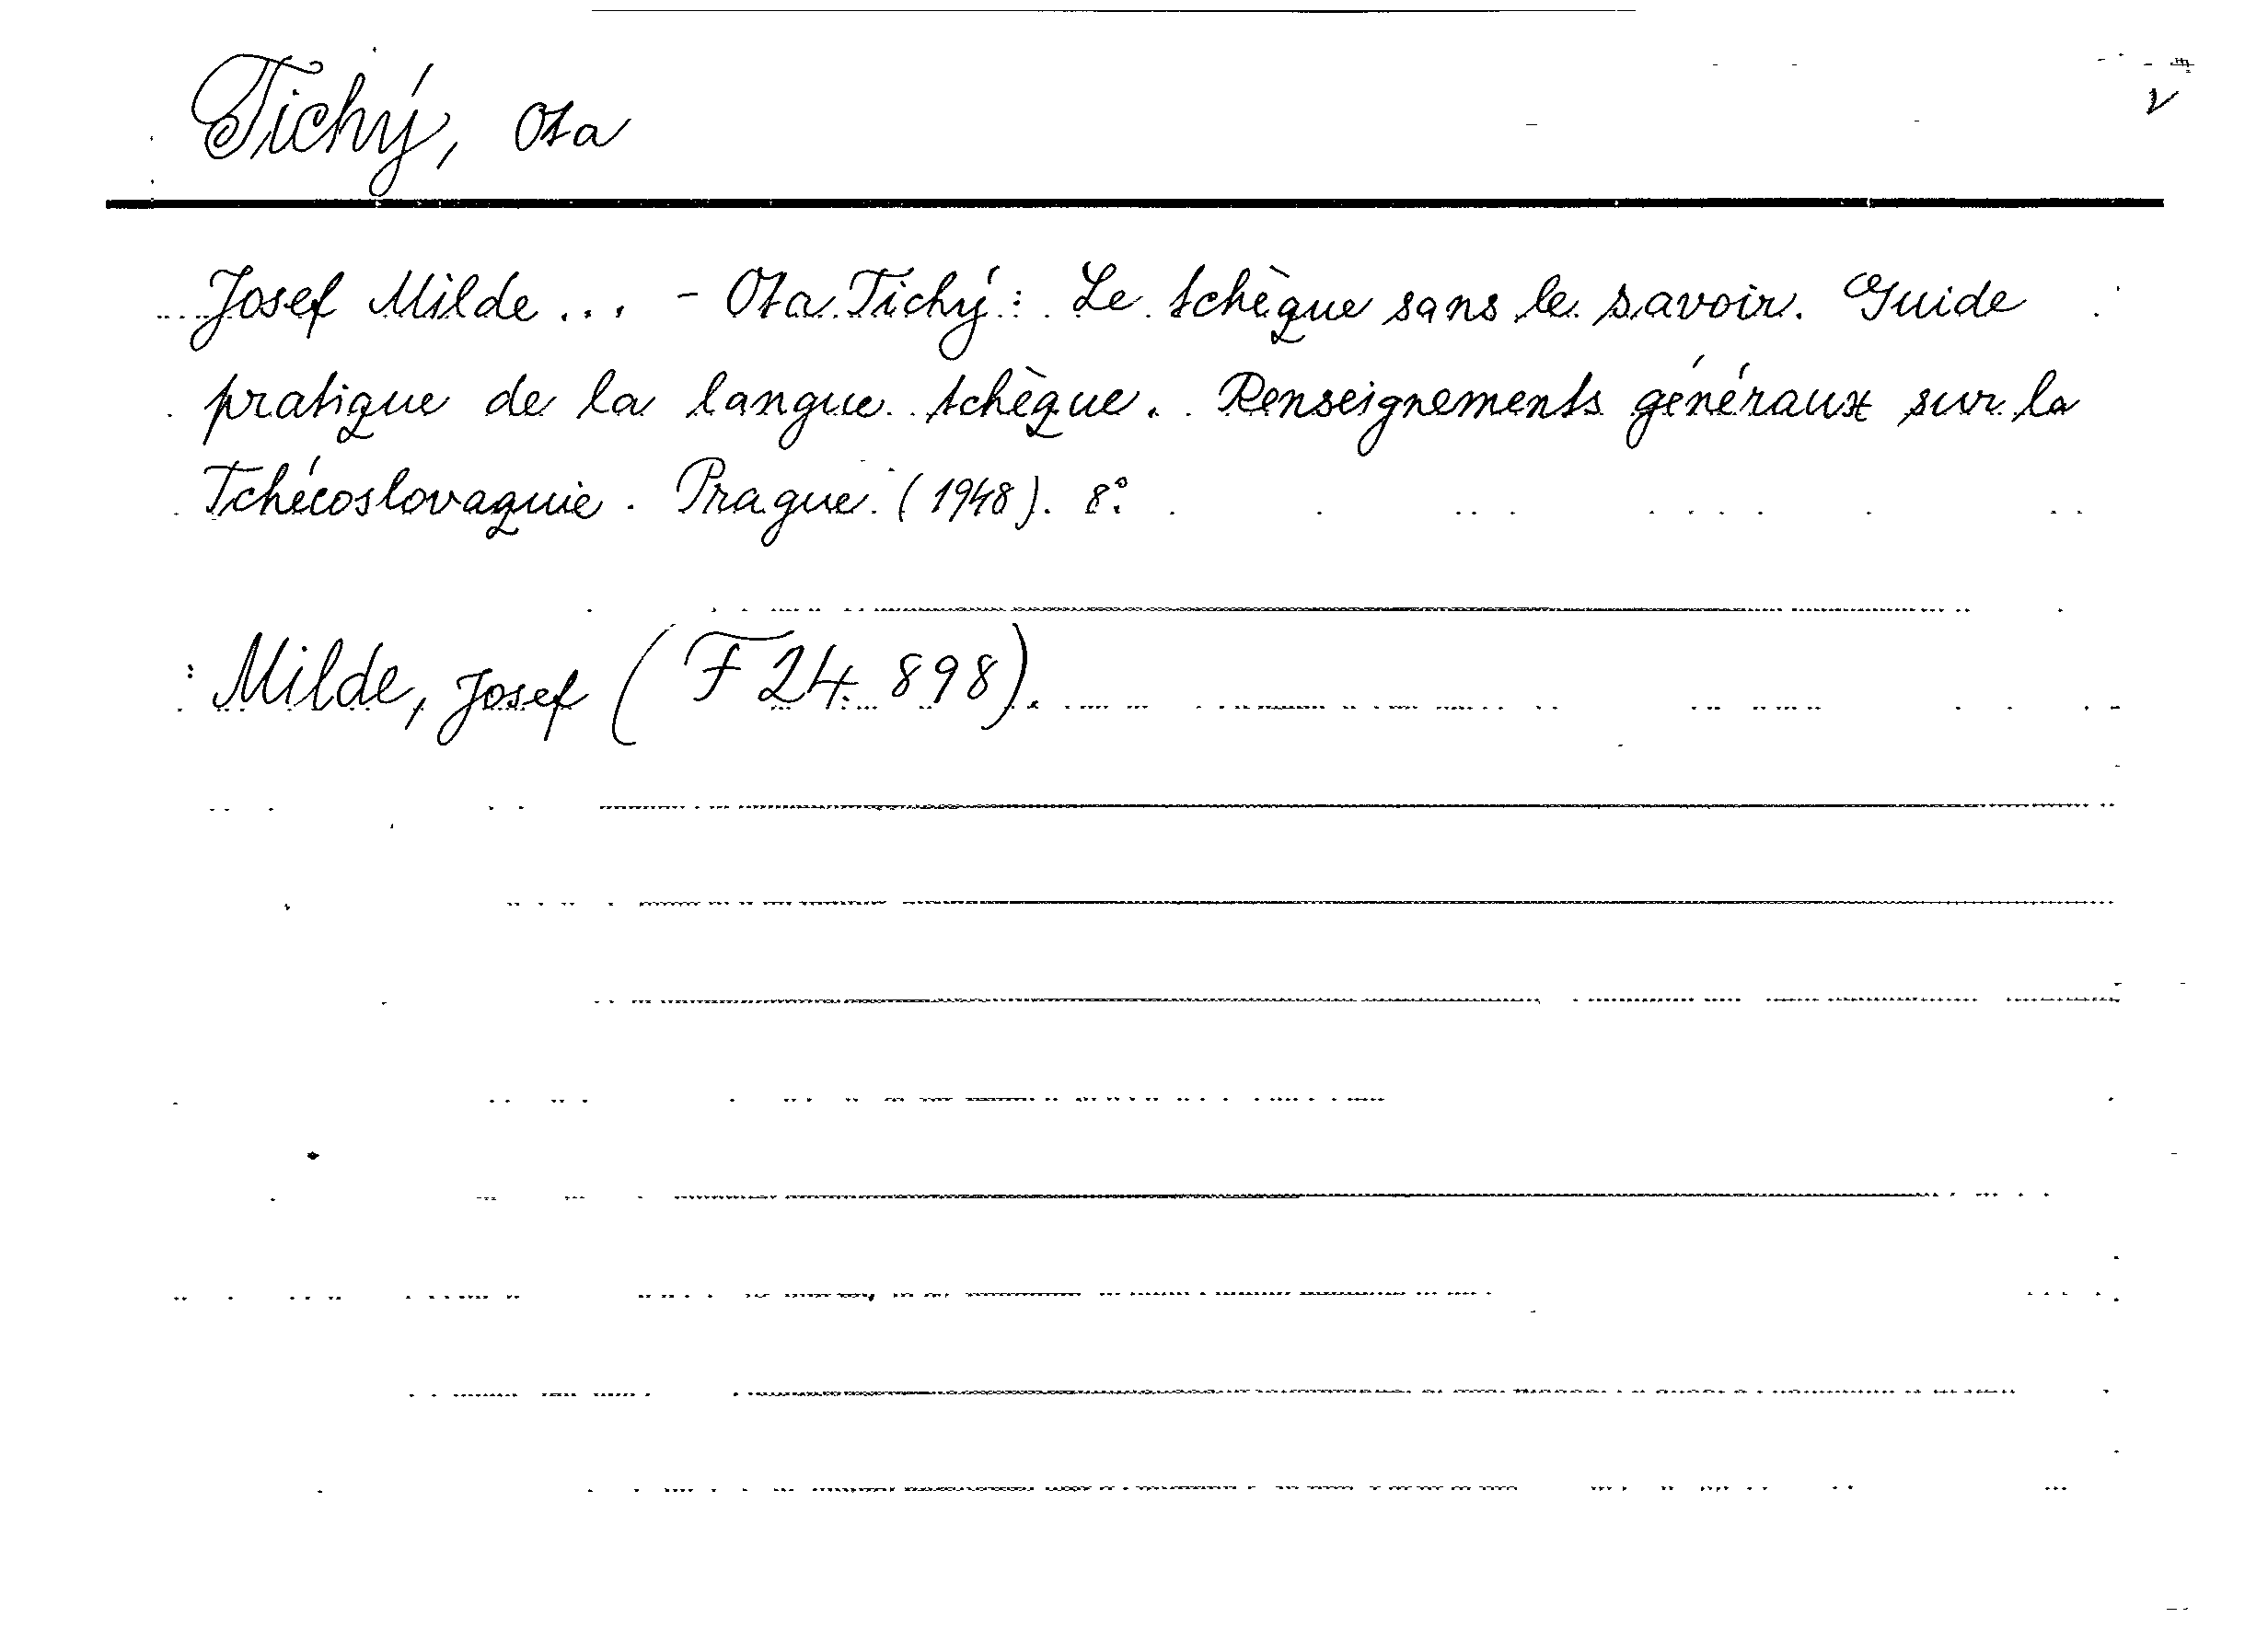 Tichý, Ota
v
Josef Milde... - Ota Tichý: Le tchèque sans le savoir. Guide
pratique de la langue tchèque. Renseignements généraux sur la
Tchécoslovaquie. Prague (1948). 8°.
Milde, Josef (F 24.898).